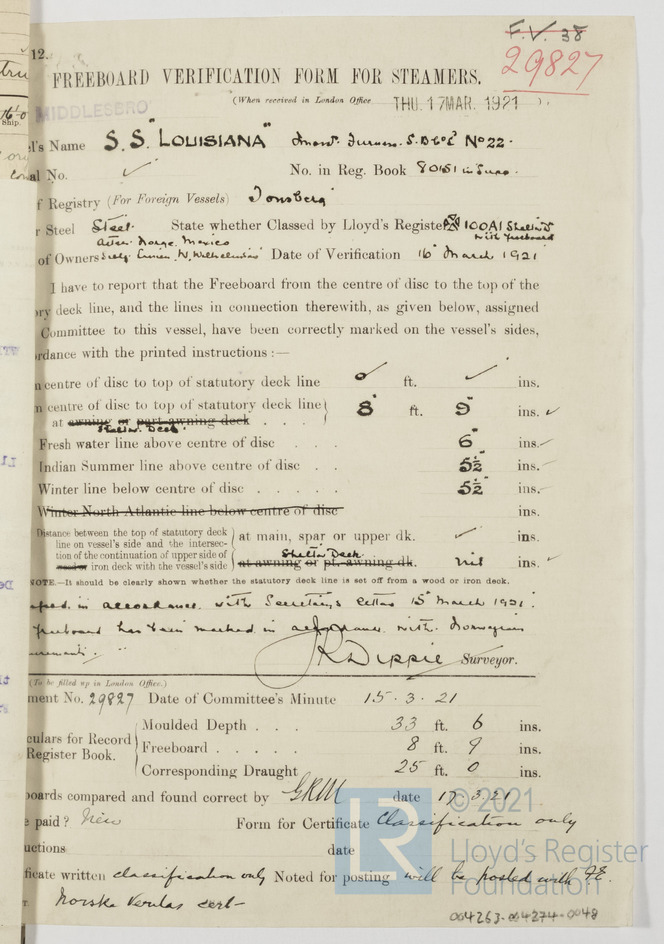 F.V. 38
12.
29827
FREEBOARD VERIFICATION FORM FOR STEAMERS.
(When received in London Office THU. 17 MAR. 1921 )
MIDDLESBRO
Ship.
l's Name S.S. "LOUISIANA" S.B. Co's No 22.
al No. ✓ No. in Reg. Book 80151 in Supp.
f Registry (For Foreign Vessels) Tonsberg
r Steel Steel. State whether Classed by Lloyd's Register 100A1 Shelter Dk with freeboard
Norge Mexico
of Owners W. Wilhelmsen Date of Verification 16th March 1921
I have to report that the Freeboard from the centre of disc to the top of the
ory deck line, and the lines in connection therewith, as given below, assigned
Committee to this vessel, have been correctly marked on the vessel's sides,
rdance with the printed instructions :—
n centre of disc to top of statutory deck line ft. ✓ ins.
n centre of disc to top of statutory deck line
at awning or part awning deck . . . 8 ft. 9 ins. ✓
Shelter Deck.
Fresh water line above centre of disc . . . 6" ins. ✓
Indian Summer line above centre of disc . . 5½" ins.
Winter line below centre of disc . . . . . 5½" ins.
Winter North Atlantic line below centre of disc ins.
Distance between the top of statutory deck
line on vessel's side and the intersec-
tion of the continuation of upper side of
wood or iron deck with the vessel's side
at main, spar or upper dk. ✓ ins.
Shelter Deck
at awning or pt. awning dk. nil ins. ✓
NOTE.—It should be clearly shown whether the statutory deck line is set off from a wood or iron deck.
in accordance with Secretary's letter 15th March 1921.
freeboard has been marked in accordance with Norwegian
JR Dippie Surveyor.
(To be filled up in London Office.)
ment No. 29827 Date of Committee's Minute 15.3.21
culars for Record
Register Book.
Moulded Depth . . . 33 ft. 6 ins.
Freeboard . . . . . 8 ft. 9 ins.
Corresponding Draught 25 ft. 0 ins.
oards compared and found correct by GRM date 17.3.21
e paid? New Form for Certificate Classification only
uctions date
ficate written classification only Noted for posting will be posted with F.E.
Norske Veritas cert-
© 2021
LR
Lloyd's Register
Foundation
004263-004274-0048